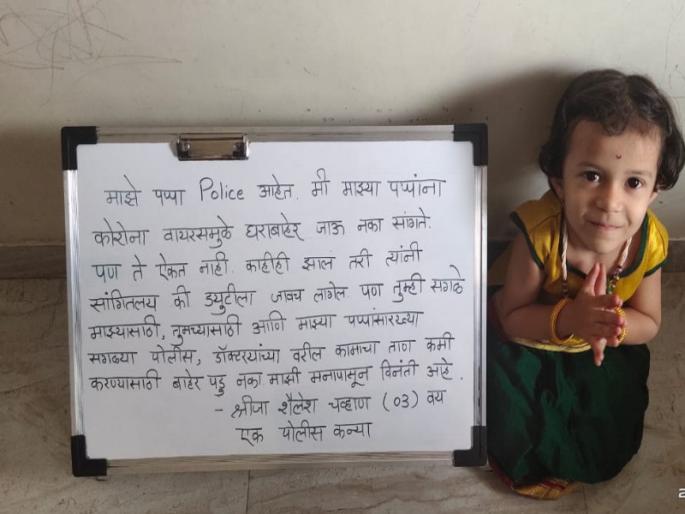 माझे पप्पा Police आहेत. मी माझ्या पप्पांना
कोरोना वायरसमुळे घराबाहेर जाऊ नका सांगते.
पण ते ऐकत नाही. काहीही झालं तरी त्यांनी
सांगितलय की ड्युटीला जावच लागेल. पण तुम्ही सगळे
माझ्यासाठी, तुमच्यासाठी आणि माझ्या पप्पांसारख्या
सगळ्या पोलीस, डॉक्टरयांच्या वरील कामाचा ताण कमी
करण्यासाठी बाहेर पडु नका माझी मनापासून विनंती आहे.
- श्रीजा शैलेश चव्हाण (०३) वय
एक पोलीस कन्या